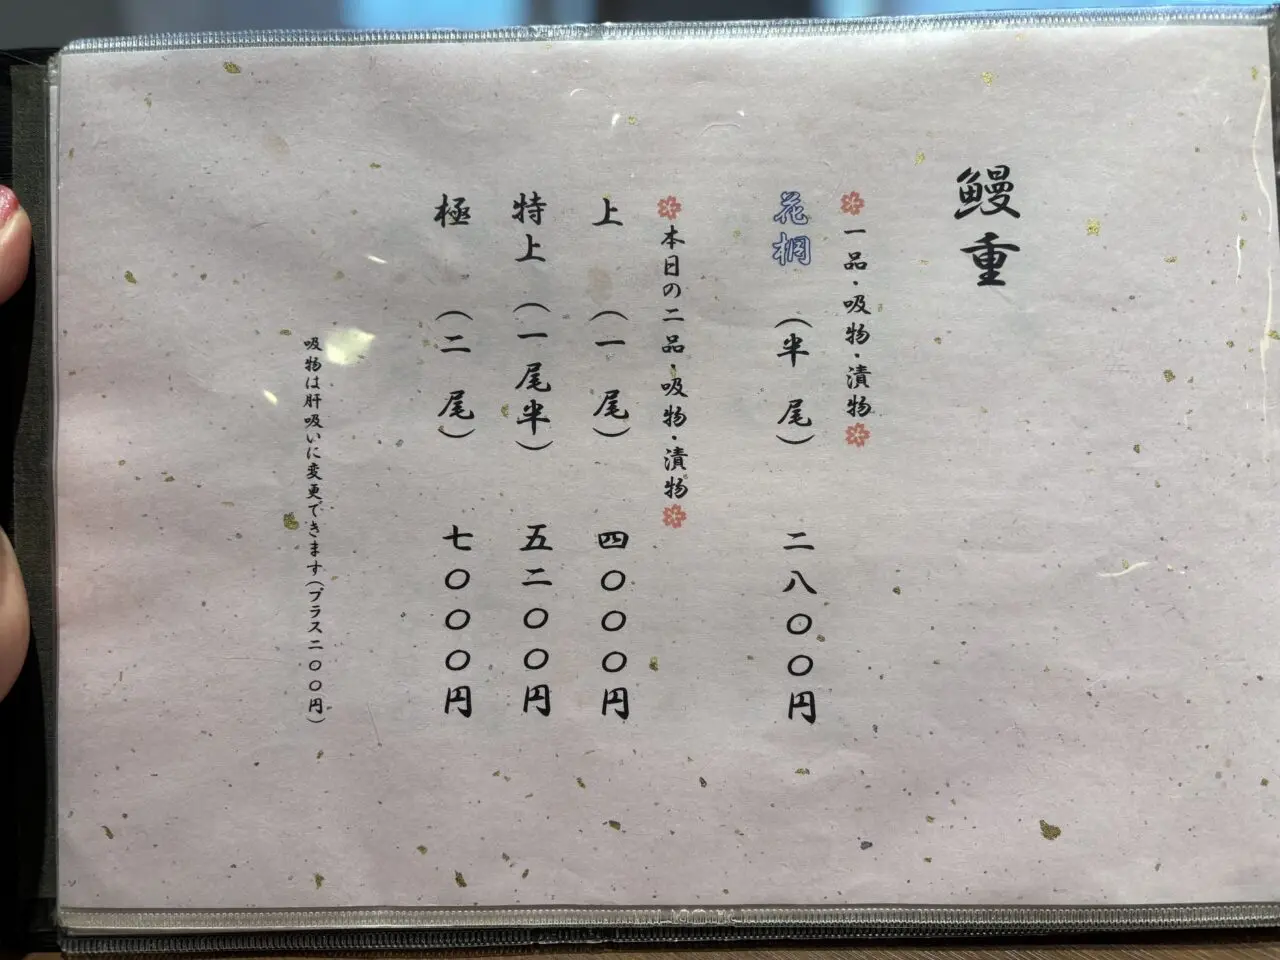 鰻重
一品・吸物・漬物
花桐（半尾）二八〇〇円
本日の二品・吸物・漬物
上（一尾）四〇〇〇円
特上（一尾半）五二〇〇円
極（二尾）七〇〇〇円
吸物は肝吸いに変更できます（プラス二〇〇円）